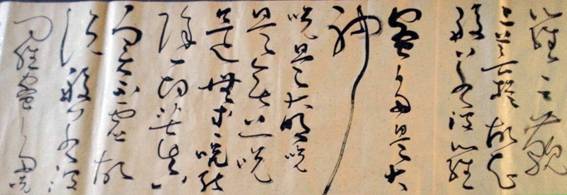 羅三藐
三菩提故知
般若波羅
蜜多是大
神
咒是大明咒
是無上咒
是無等等咒能
除一切苦真
實不虛故
說般若波
羅蜜多咒